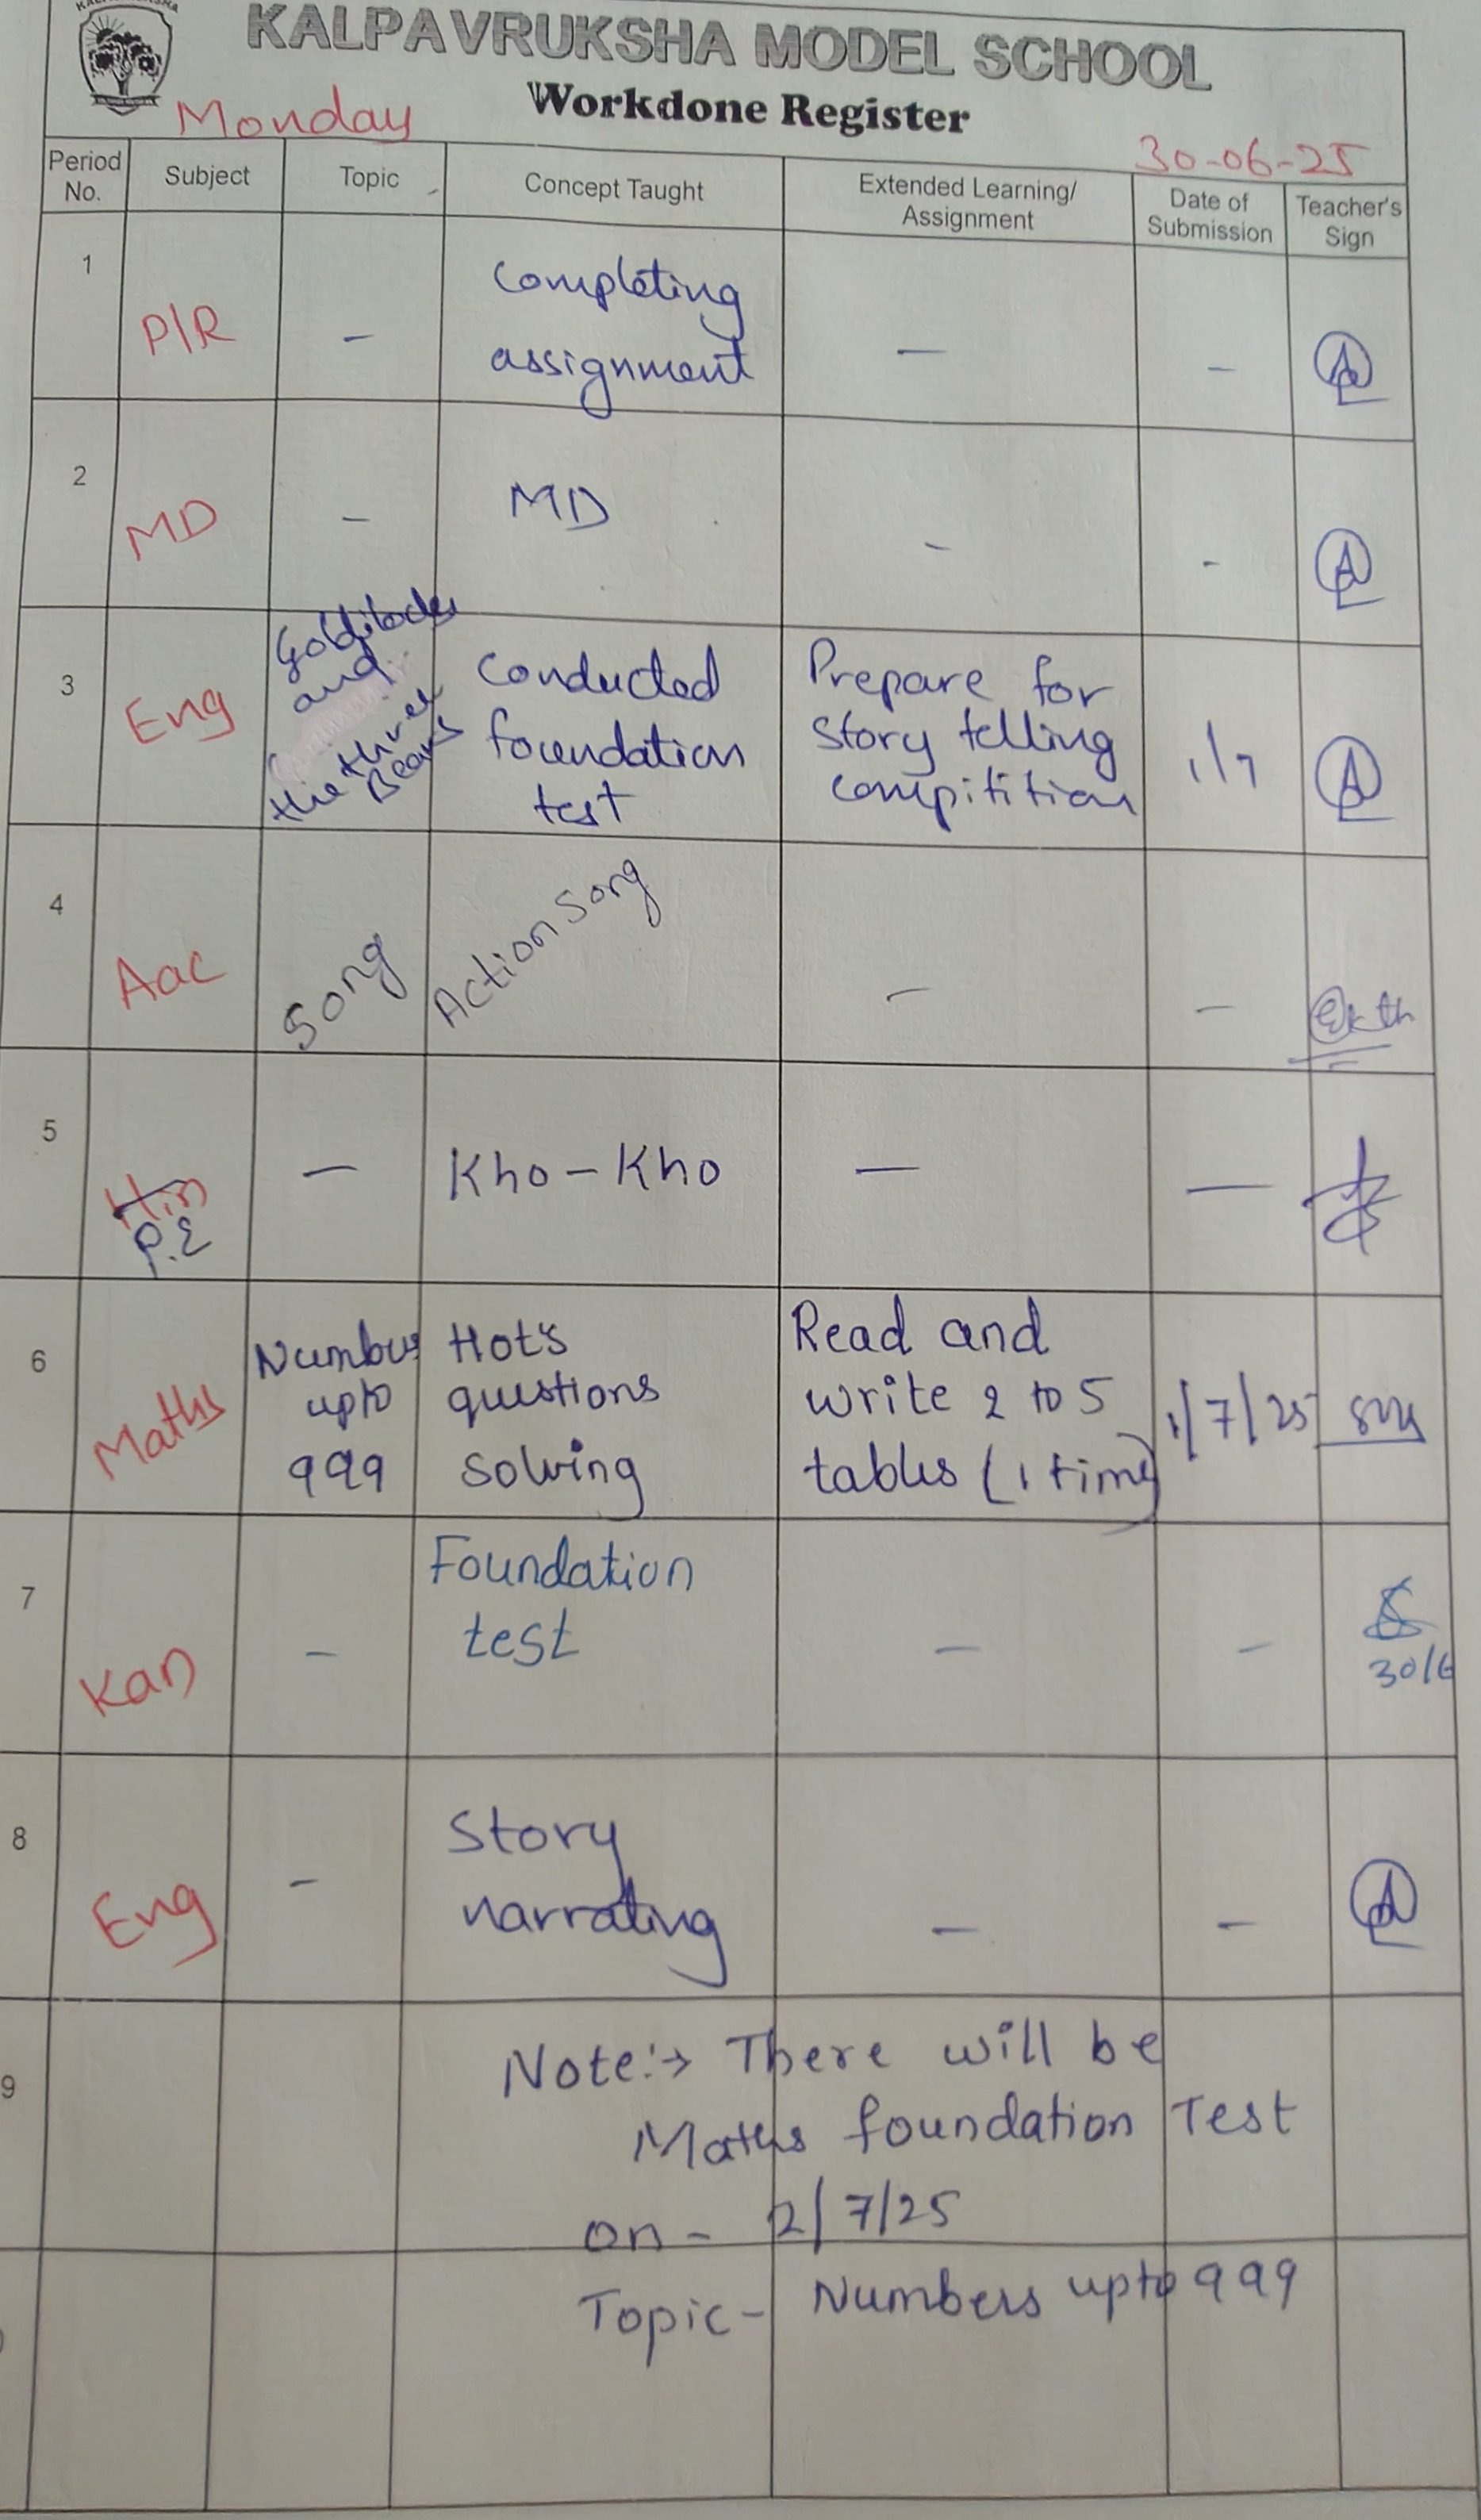 KALPAVRUKSHA MODEL SCHOOL
Workdone Register
Monday
30-06-25
Period No. Subject Topic Concept Taught Extended Learning/ Assignment Date of Submission Teacher's Sign
1
P/R
-
Completing
assignment
-
-
2
MD
-
MD
-
-
3
Eng
Goldilocks
and
the three
Bears
Conducted
foundation
test
Prepare for
story telling
compitition
1/7
4
Aac
Song
Action Song
-
-
5
Hin
P.E
-
Kho-Kho
-
-
6
Maths
Numbers
upto
999
Hot's
questions
solving
Read and
write 2 to 5
tables (1 time)
1/7/25
7
Kan
-
Foundation
test
-
-
30/6
8
Eng
-
Story
narrating
-
-
9
Note:→ There will be
Maths foundation Test
on - 2/7/25
Topic - Numbers upto 999